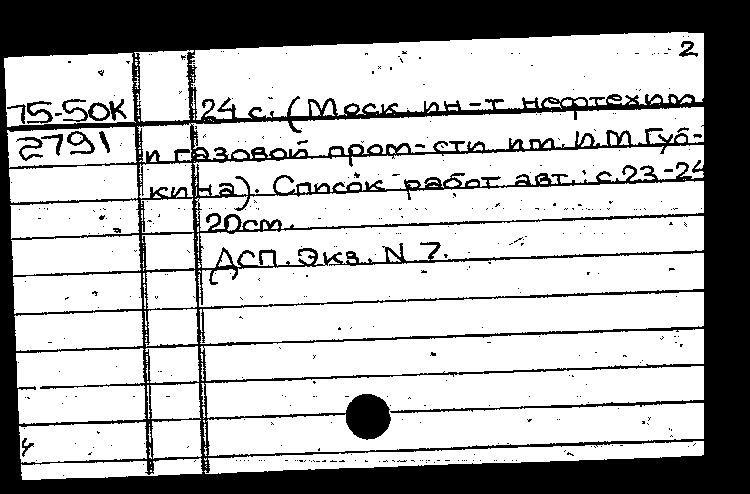 2
75-50К 24 с. (Моск. ин-т нефтехим.
2791
и газовой пром-сти им. И.М.Губ-
кина). Список работ авт.: с.23-24
20см.
ДСП. Экз. N 7.